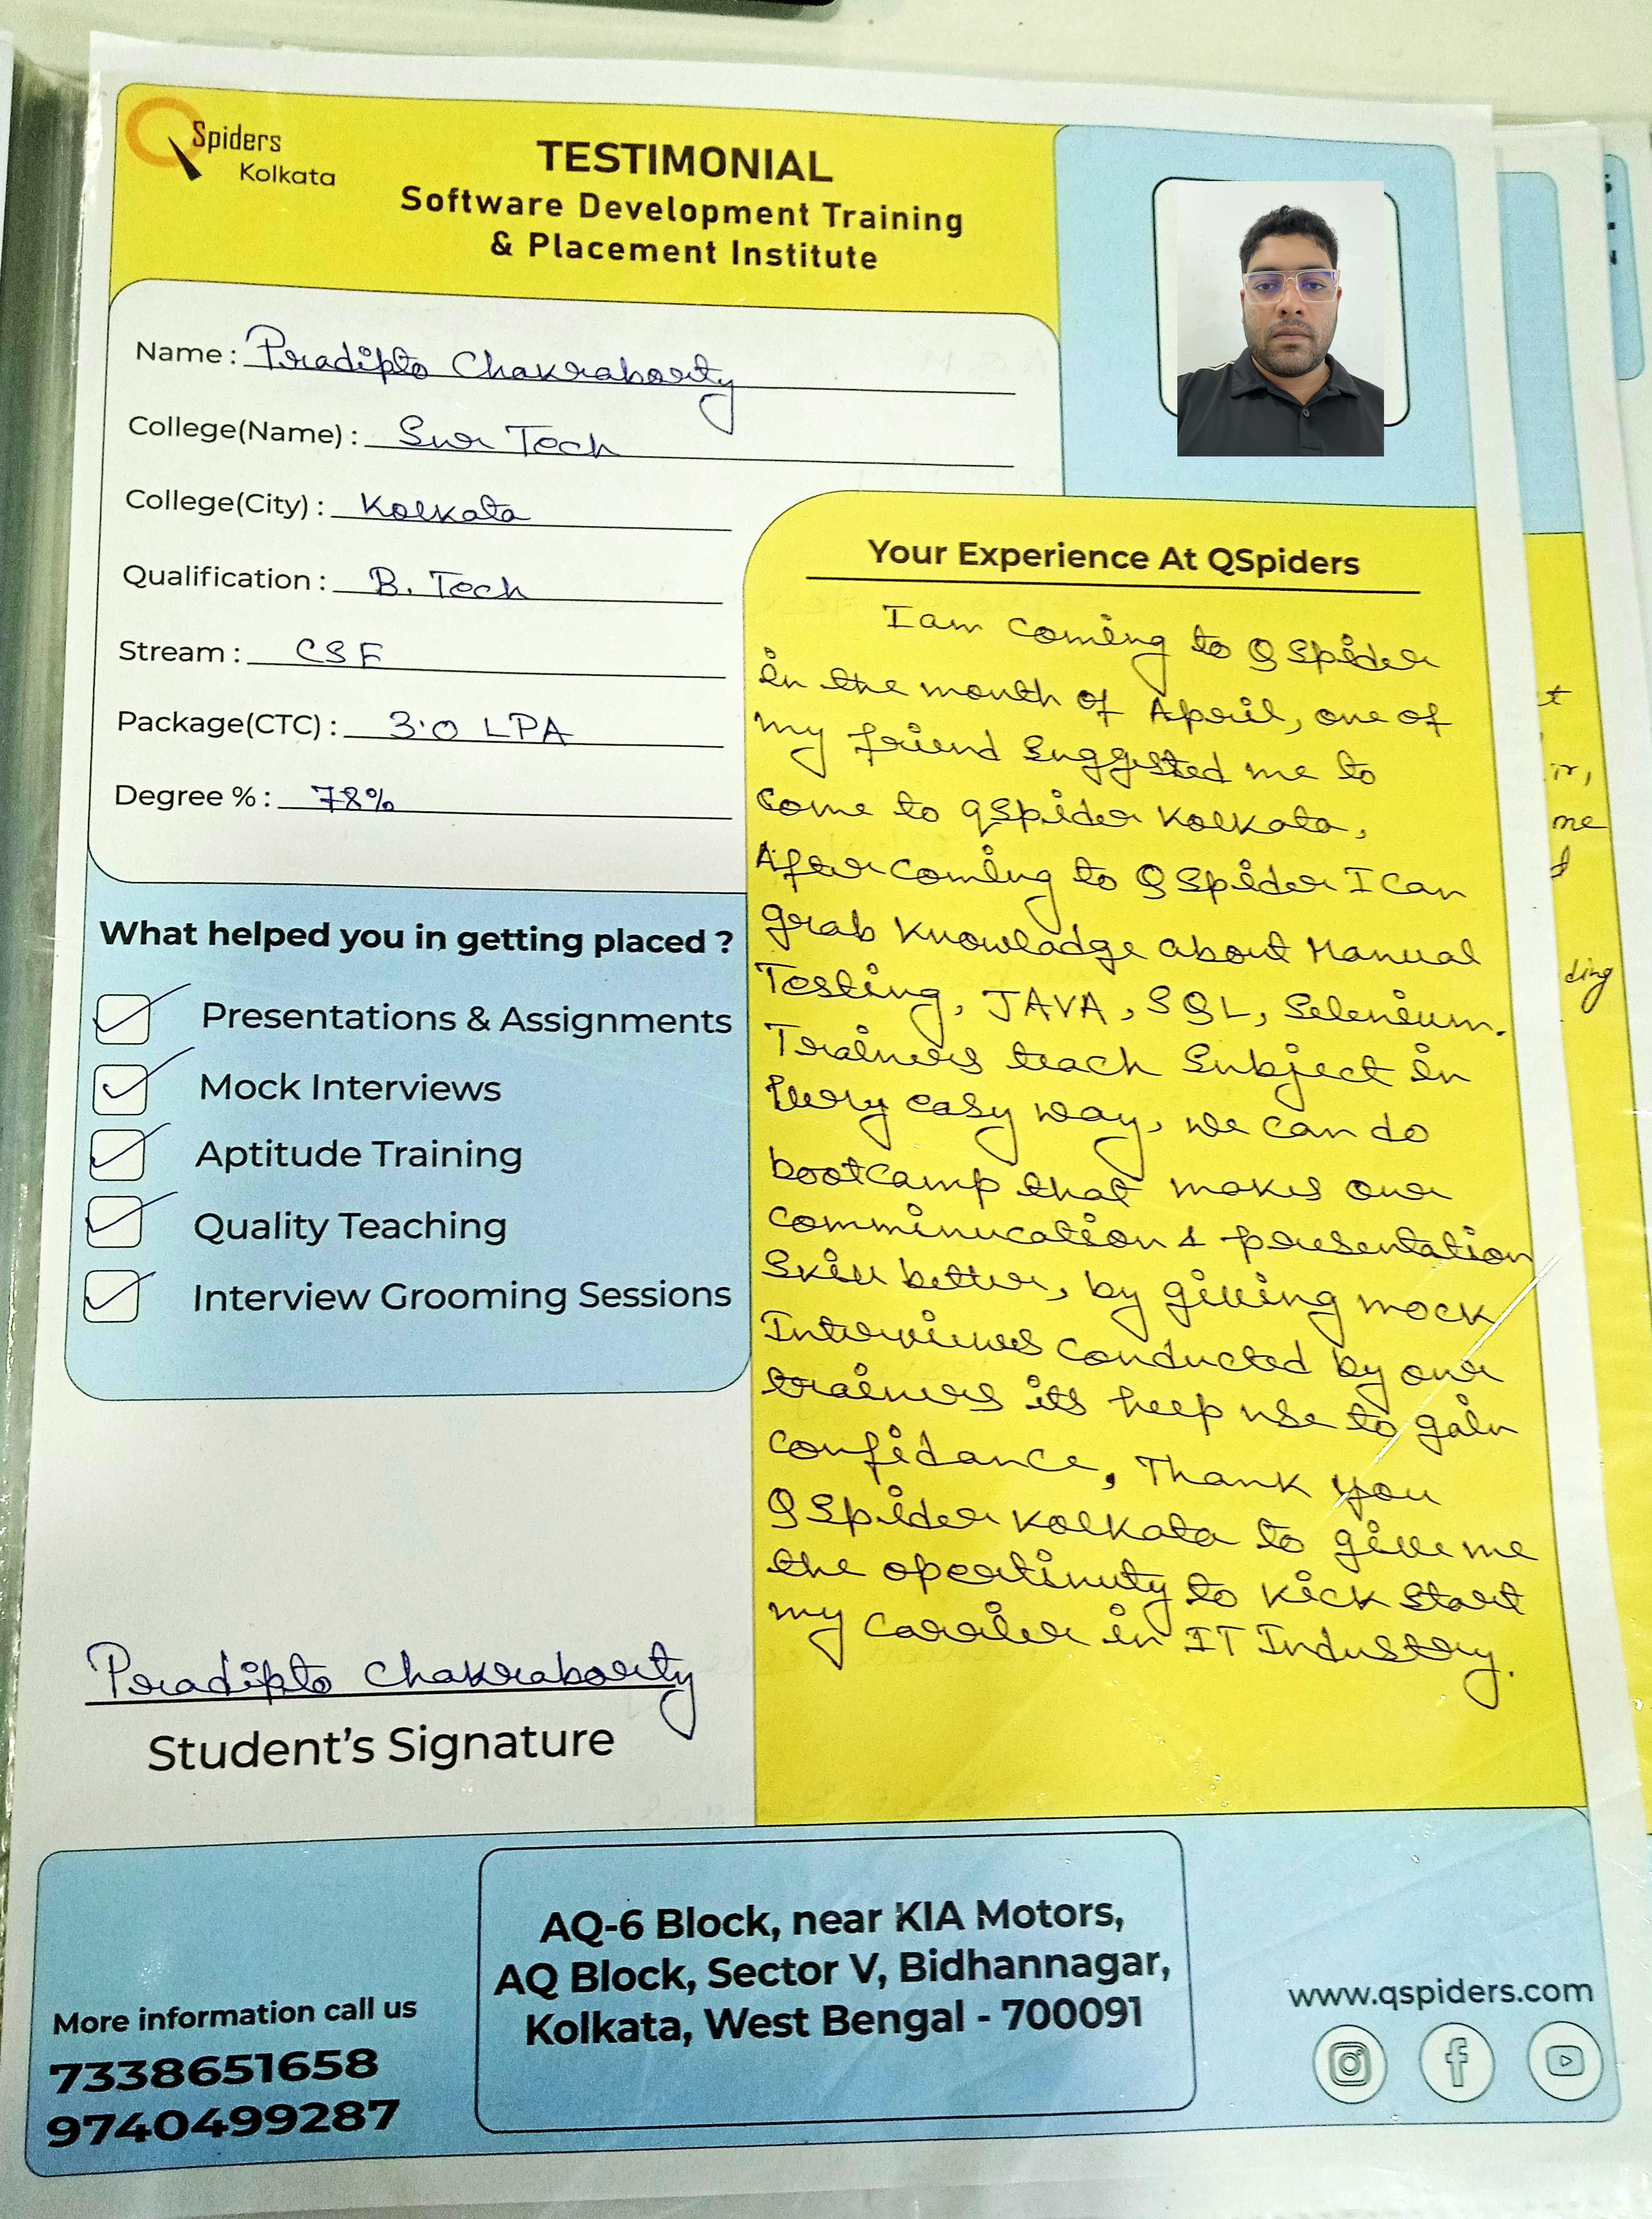 QSpiders
Kolkata
TESTIMONIAL
Software Development Training
& Placement Institute
Name : Pradipto Chakraborty
College(Name) : Sur Tech
College(City) : Kolkata
Qualification : B. Tech
Stream : CSE
Package(CTC) : 3.0 LPA
Degree % : 78%
What helped you in getting placed ?
Presentations & Assignments
Mock Interviews
Aptitude Training
Quality Teaching
Interview Grooming Sessions
Pradipto Chakraborty
Student's Signature
Your Experience At QSpiders
I am coming to QSpider
in the month of April, one of
my friend suggested me to
come to qspider Kolkata,
After coming to QSpider I Can
grab knowladge about Manual
Testing, JAVA, SQL, Selenium.
Trainers teach Subject in
Very easy way, we can do
bootcamp that makes our
comminucation & presentation
Skill better, by giving mock
Interviews conducted by our
trainers its help use to gain
confidance, Thank you
QSpider Kolkata to give me
the opertinuty to kick start
my carrier in IT Industry.
More information call us
7338651658
9740499287
AQ-6 Block, near KIA Motors,
AQ Block, Sector V, Bidhannagar,
Kolkata, West Bengal - 700091
www.qspiders.com
t
ir,
me
d
ding